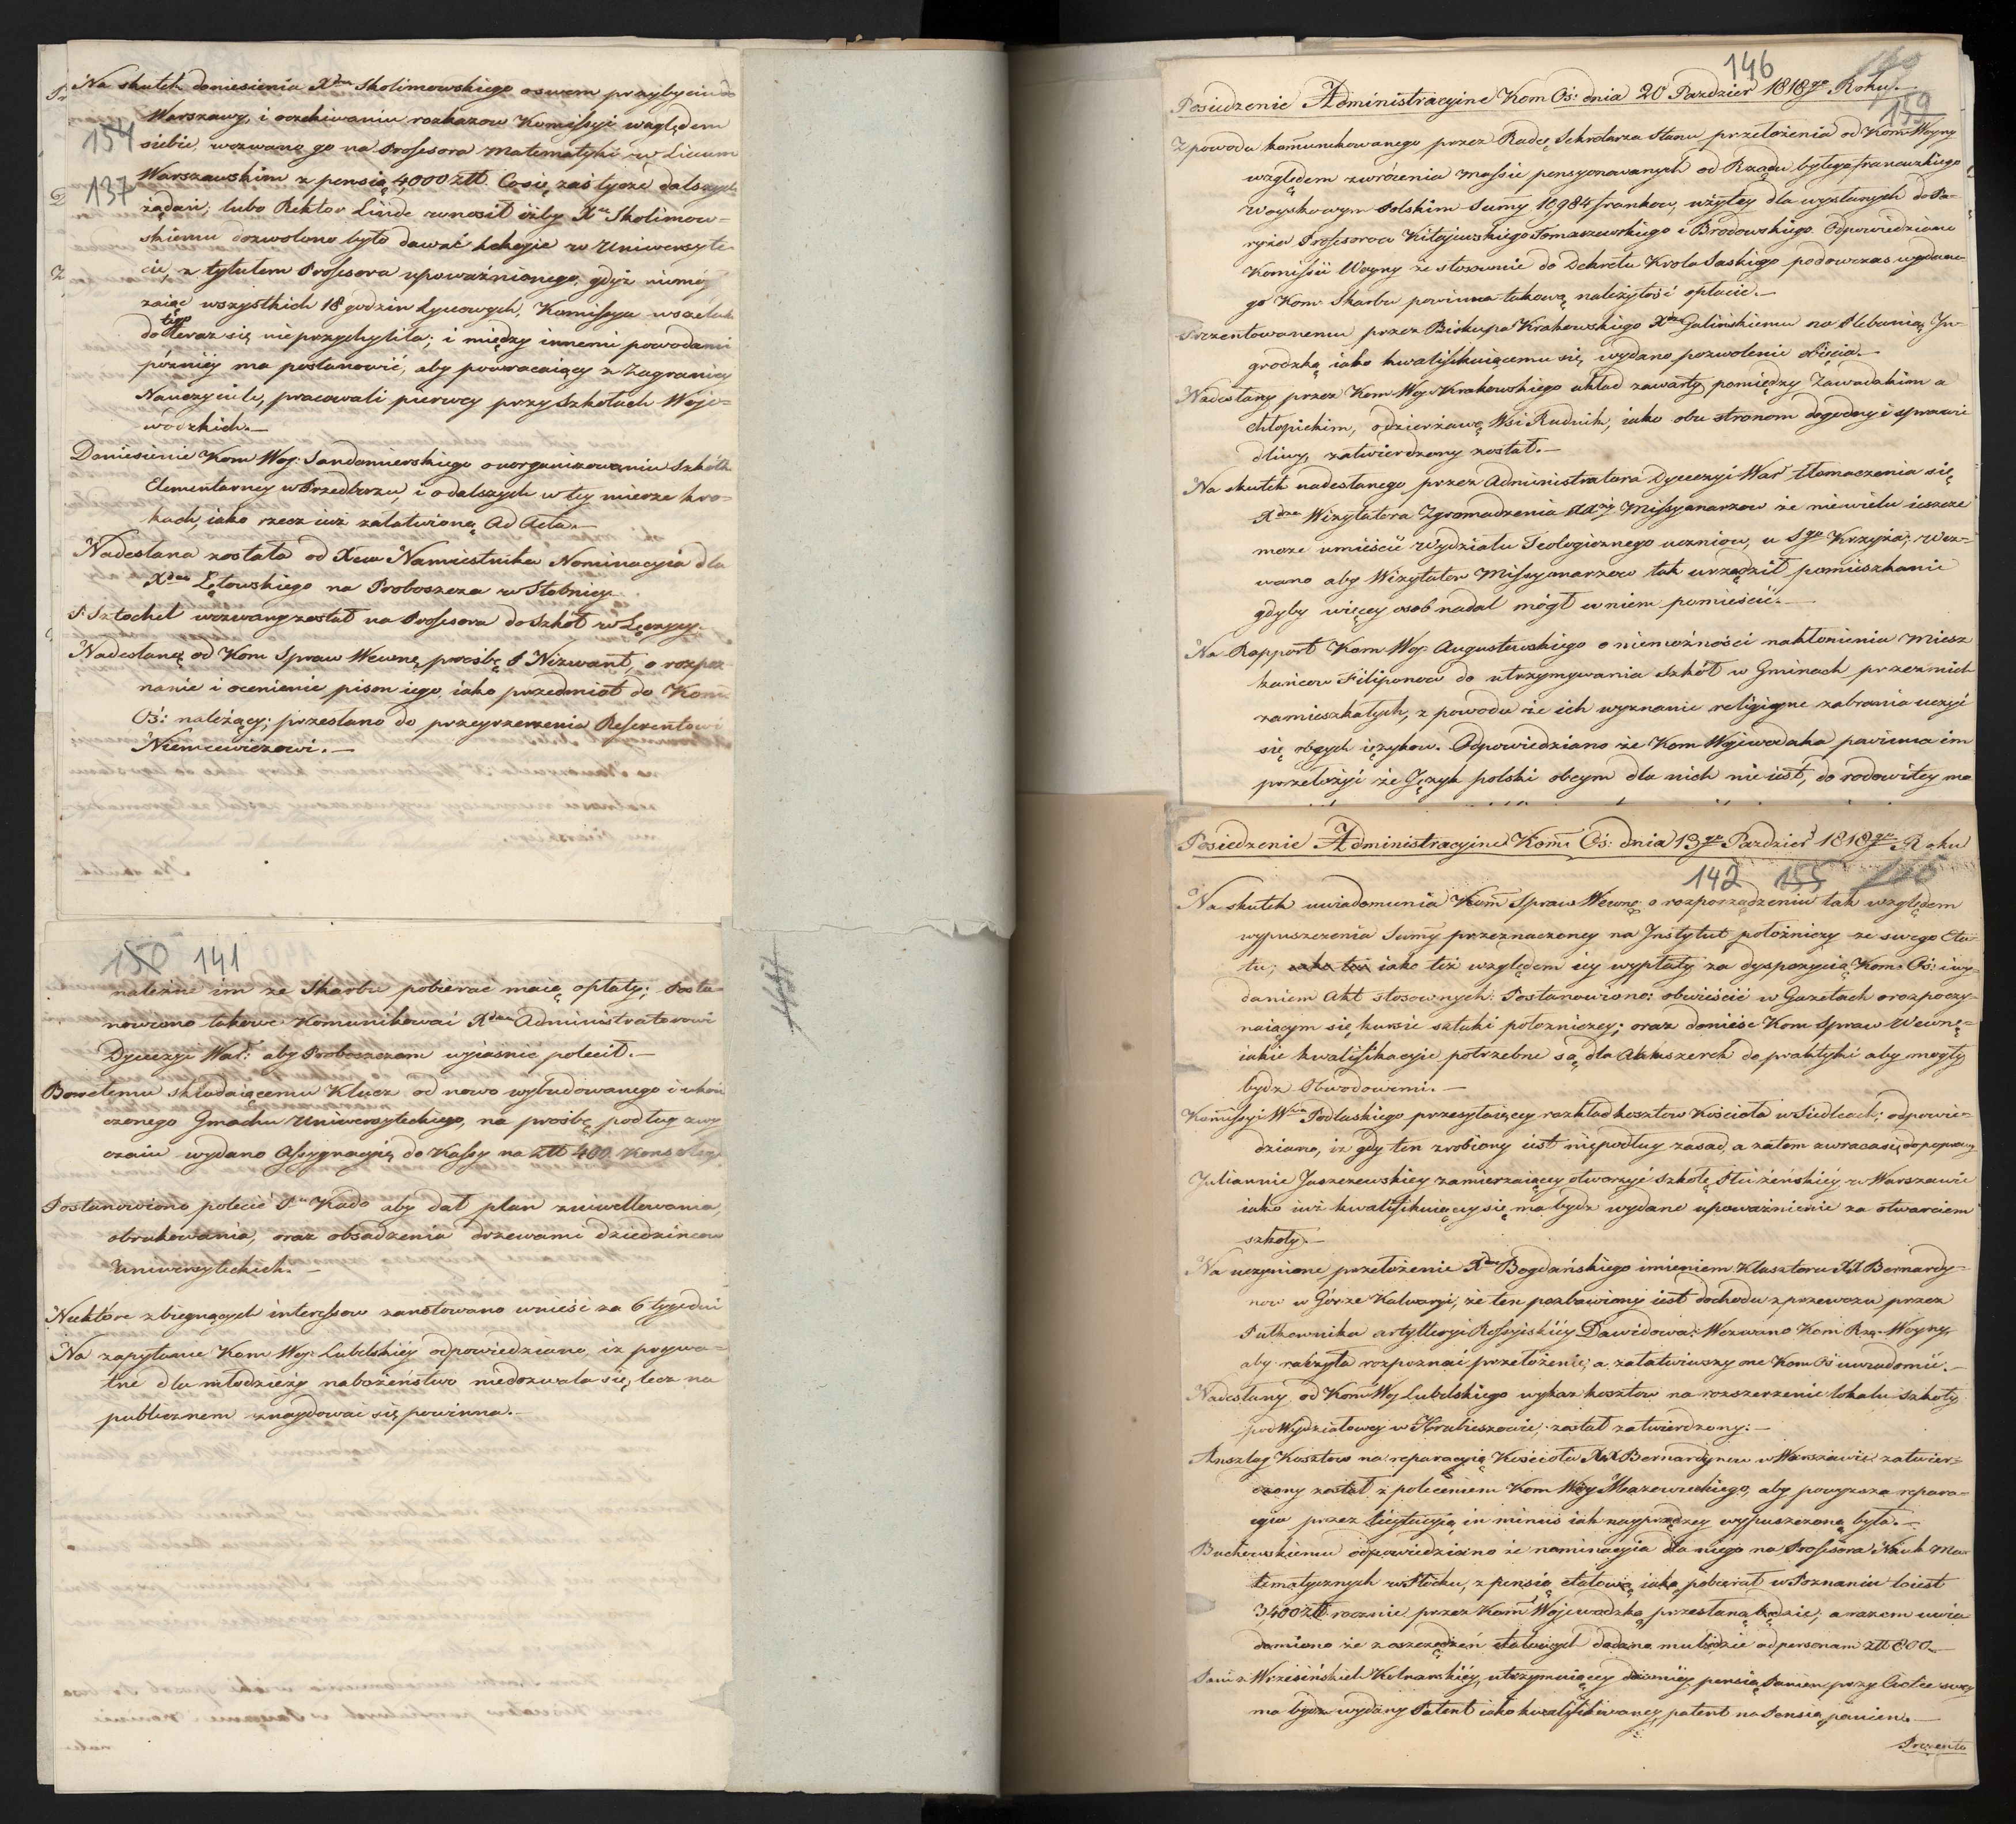 Na skutek doniesienia Xdza Skolimowskiego o swem przybyciu do
Warszawy, i oczekiwaniu rozkazow Komissyi względem
154
siebie, wezwano go na Professora Matematyki w Liceum
137
Warszawskim z pensią 4,000 ztt. Co się zaś tycze dalszych
żądań; lubo Rektor Linde wnosił iżby Xu Skolimow-
skiemu dozwolono było dawać lekcyie w Uniwersyte-
cie, z tytułem Professora upoważnionego, gdyż niemó
zaiąć wszystkich 18 godzin Lyceowych, Komissya wszelak
do tego teraz się nieprzychyliła; i między innemi powodami
późniéy ma postanowić, aby powracaiący z Zagranicy
Nauczyciele, pracowali pierwey przy Szkołach Woje-
wódzkich.—
Doniesienie Kom Woj: Sandomierskiego o uorganizowaniu Szkółk
Elementarney w Przedborzu, i o dalszych w tey mierze kro-
kach, iako rzecz iuż załatwioną Ad Acta.—
Nadesłana została od Xcia Namiestnika Nominacyia dla
Xdza Łętowskiego na Proboszcza w Stobnicy.
P. Sztochel wezwany został na Professora do Szkół w Łęczycy.
Nadesłaną od Kom Spraw Wewnę prośbę P Nizwant, o rozpoz-
nanie i ocenienie pism iego, iako przedmiot do Kom
Oś: należący; przesłano do przeyrzenia Referentowi
Niemcewiczowi.—
150 141
należne im ze Skarbu pobierac maią opłaty; Posta-
nowiono takowe Komunikować Xdzu Administratorowi
Dyecezyi War: aby Proboszczom wyiaśnic polecił.—
Boretemu składaiącemu Klucz od nowo wybudowanego i ukoń
czonego Gmachu Uniwersyteckiego, na prośbę podług zwy
czaiu wydano Assygnacyią do Kassy na ztt 400.
Postanowiono polecić P. Kado aby dał plan zniwellowania,
obrukowania, oraz obsadzenia drzewami dziedzińcow
Uniwersyteckich.—
Niektóre z biegnących interessow zanotowano wnieść za 6 tygodni
Na zapytanie Kom Woj: Lubelskiey odpowiedziano, iż prywa-
tne dla młodzieży nabożeństwo niedozwala się, lecz na
publicznem znaydować się powinna.—
146
Posiedzenie Administracyine Kom Oś: dnia 20 Pazdzier 1818go Roku.
159
Z powodu kommunikowanego przez Radcę Sekretarza Stanu przełożenia od Kom: Woyny
względem zwrócenia massie pensyonowanych od Rządu byłego francuzkiego
Woyskowym Polskim Summy 10,984 frankow, użytey dla wysłanych do Pa-
ryża Professorow Kitajewskiego Tomaszewskiego i Brodowskiego. Odpowiedziano
Komissii Woyny że stosownie do Dekretu Krola Saskiego podowczas wydane-
go Kom: Skarbu powinna takową należytość opłacić.—
Prezentowanemu przez Biskupa Krakowskiego Xdzu Galińskiemu na Plebanią In-
grodzką iako kwalifikuiącemu się, wydano pozwolenie obięcia.—
Nadesłany przez Kom Woj Krakowskiego układ zawarty, pomiędzy Zawadzkim a
Chłopickim, o dzierżawę Wsi Rudnik, iako obu stronom dogodny i sprawie
dliwy, zatwierdzony został.—
Na skutek nadesłanego przez Administratora Dyecezyi War tłomaczenia się
Xdza Wizytatora Zgromadzenia XXży Missyonarzow że niewielu ieszcze
moze umieścić Wydziału Teologicznego uczniow, u Sgo Krzyża; Wez-
wano aby Wizytator Missyonarzow tak urządził pomieszkanie
gdyby więcey osob nadal mógł w niem pomieścić.—
Na Rapport Kom Woj: Augustowskiego o niemożności nakłonieniu miesz
kańcow Filiponow do utrzymywania szkół w Gminach przez nich
zamieszkałych, z powodu że ich wyznanie religiyne zabrania uczyć
się obcych ięzykow. Odpowiedziano że Kom Wojewodzka powinna im
przełożyć że Język polski obcym dla nich nie iest, do rodowitey mo
Posiedzenie Administracyine Kom: Oś: dnia 13go Pazdzier 1818go Roku
142 155
Na skutek uwiadomienia Kom Spraw Wewnę o rozporządzeniu tak względem
wypuszczenia Summy przeznaczoney na Instytut położniczy ze swego Eta-
tu; iako też iako też względem iey wypłaty za dyspozycią Kom: Oś: i wy-
daniem Akt stosownych. Postanowiono: obwieścić w Gazetach o rozpoczy-
naiącym się kursie sztuki położniczey; oraz donieść Kom Spraw Wewnę-
iakie kwalifikacyie potrzebne są dla Akuszerek do praktyki aby mogły
bydz Obwodowemi.—
Komissyi Wa Podlaskiego przesyłaiącey rozkład kosztow Kościoła w Siedlcach; odpowie-
dziano, iz gdy ten zrobiony iest niepodług zasad, a zatem zwraca się do poprawy
Juliannie Jaszczewskiey zamierzaiącey otworzyć Szkołę Płci żeńskiéy w Warszawie
iako iuż kwalifikuiącey się ma bydz wydane upoważnienie za otwarciem
szkoły.—
Na uczynione przełożenie Xdza Bogdańskiego imieniem Klasztoru XX Bernardy-
now w Górze Kalwaryi, że ten pozbawiony iest dochodu z przewozu przez
Pułkownika artylleryi Rossyiskiéy Dawidowa; Wezwano Kom Rzą: Woyny,
aby raczyła rozpoznać przełożenie, a załatwiwszy one Kom Oś uwiadomić.—
Nadesłany od Kom Woj Lubelskiego wykaz kosztow na rozszerzenie lokalu szkoły
pod Wydziałowey w Hrubieszowie, został zatwierdzony.—
Anszlag Kosztow na reparacyią Kościoła XX Bernardynow w Warszawie zatwier-
czony został z poleceniem Kom Woj Mazowieckiego, aby powyzsza repara-
cyia przez licytacyią in minus iak nayprzędzey wypuszczoną była.—
Buchowskiemu odpowiedziano że nominacyia dla niego na Professora Nauk Ma-
tematycznych w Płocku, z pensią etatową iaką pobierał w Poznaniu to iest
3400 ztt rocznie przez Kom Wojewodzką przesłaną będzie, a razem uwia
domiono że z oszczędzeń etatowych dodane mu będzie ad personam ztt 800.—
Pani z Wrzesińskich Kolnarskiéy, utrzymuiącey dawniéy pensią Panien przy Ciotce swey
ma bydz wydany Patent iako kwalifikowaney patent na Pensią panien.—
Prezento